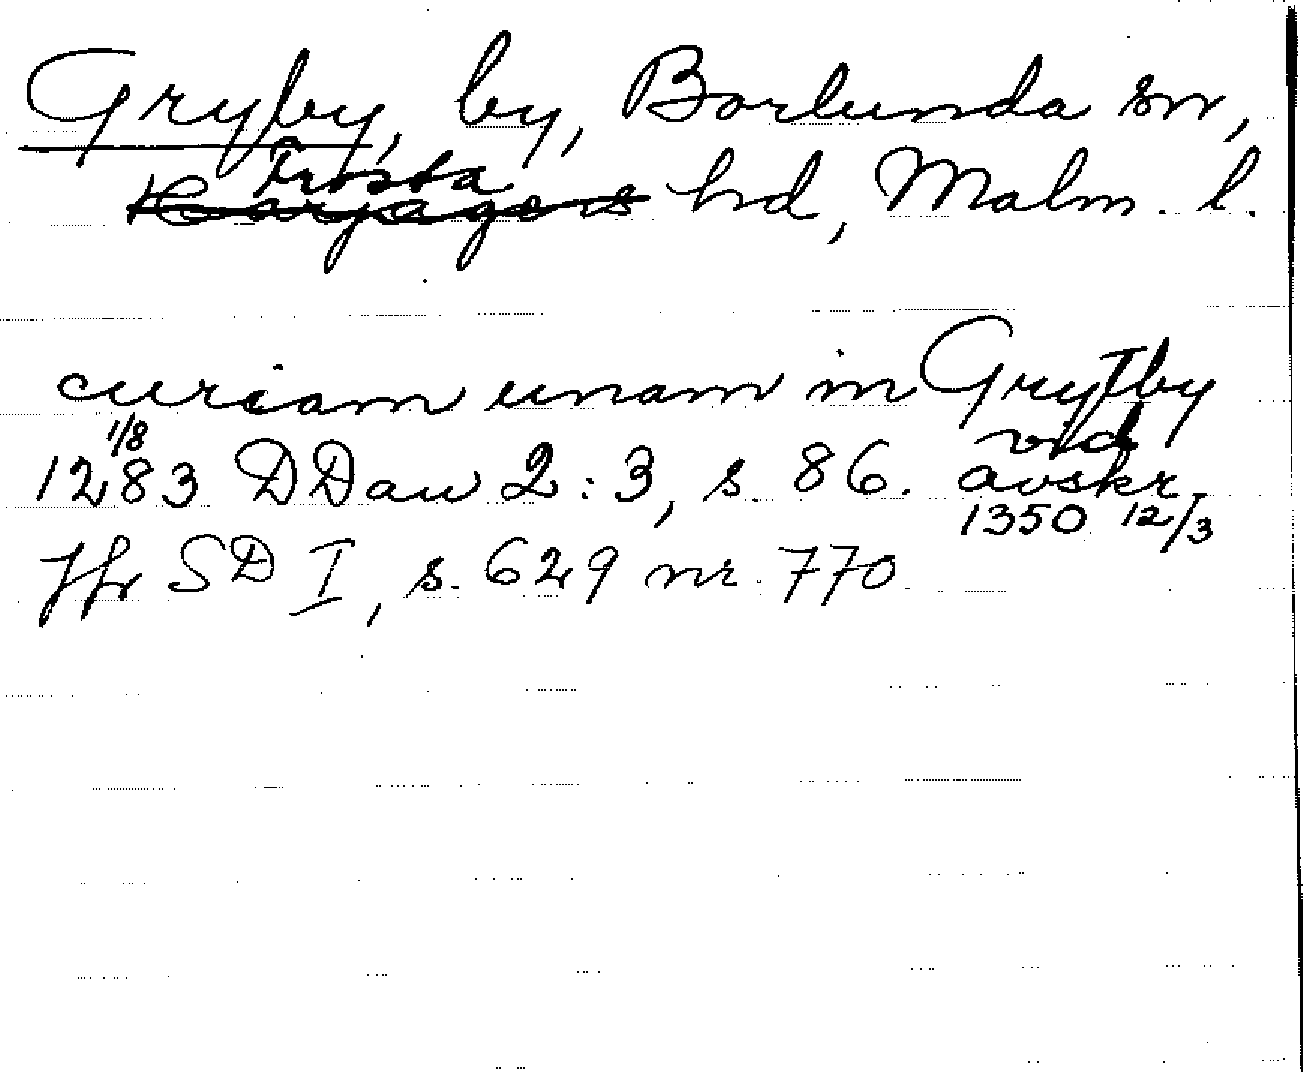 Gryby, by, Borlunda sn,
Frosta
Harjagers hd, Malm. l.
curiam unam in Grytby
1283 1/8 DDaw 2:3, s. 86. vid
avskr
1350 12/3
Jfr SD I, s. 629 nr 770